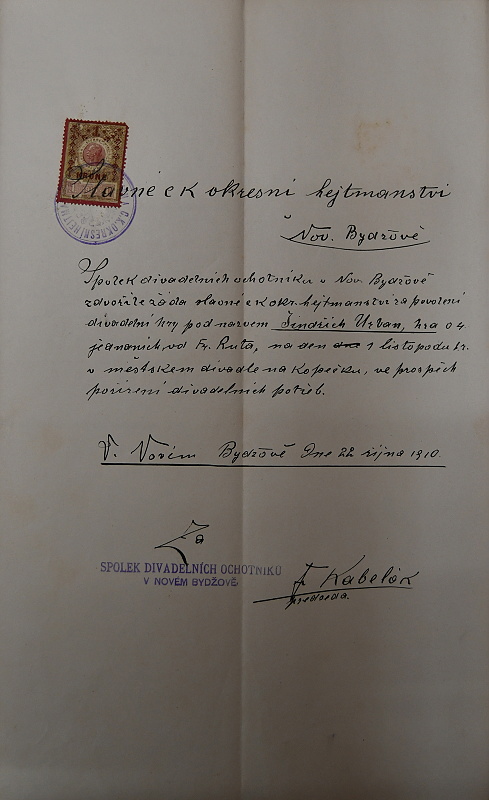 1
KORUNA
C.K. OKRESNÍ HEJTM
Slavné c k okresní hejtmanství
v Nov. Bydžově
Spolek divadelních ochotníku v Nov Bydžově
zdvořile žáda slavné c k okr. hejtmanství za povolení
divadelní hry pod názvem Jindřich Urban, hra o 4
jednaních, od Fr. Ruta, na den dne 1 listopadu t.r.
v městskem divadle na kopečku, ve prospěch
pořízení divadelních potřeb.
V. Novém Bydžově Dne 22 října 1910.
Za
SPOLEK DIVADELNÍCH OCHOTNÍKŮ
V NOVÉM BYDŽOVĚ
F Kabelák
předseda.